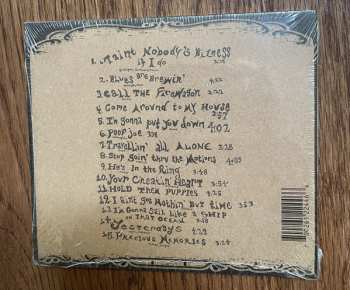 1. Taint Nobody's Bizness
if I do
2. Blues are Brewin'
3. Call The Firewagon 3:22
4 Come Around to My House
3:57
5. I'm gonna put you down 4:02
6. Poor Joe
7. Travellin' all ALONE 3:28
8. Stop goin' thru the Motions 4:09
9. He's In the Ring 3:48
10. Your Cheatin' Heart 3:54
11. HOLD Them PUPPIES
12. I aint got Nothin' But Time
13 I'm Gonna Sail Like a SHIP
on That Ocean
14. Yesterdays 4:29
15. Precious Memories